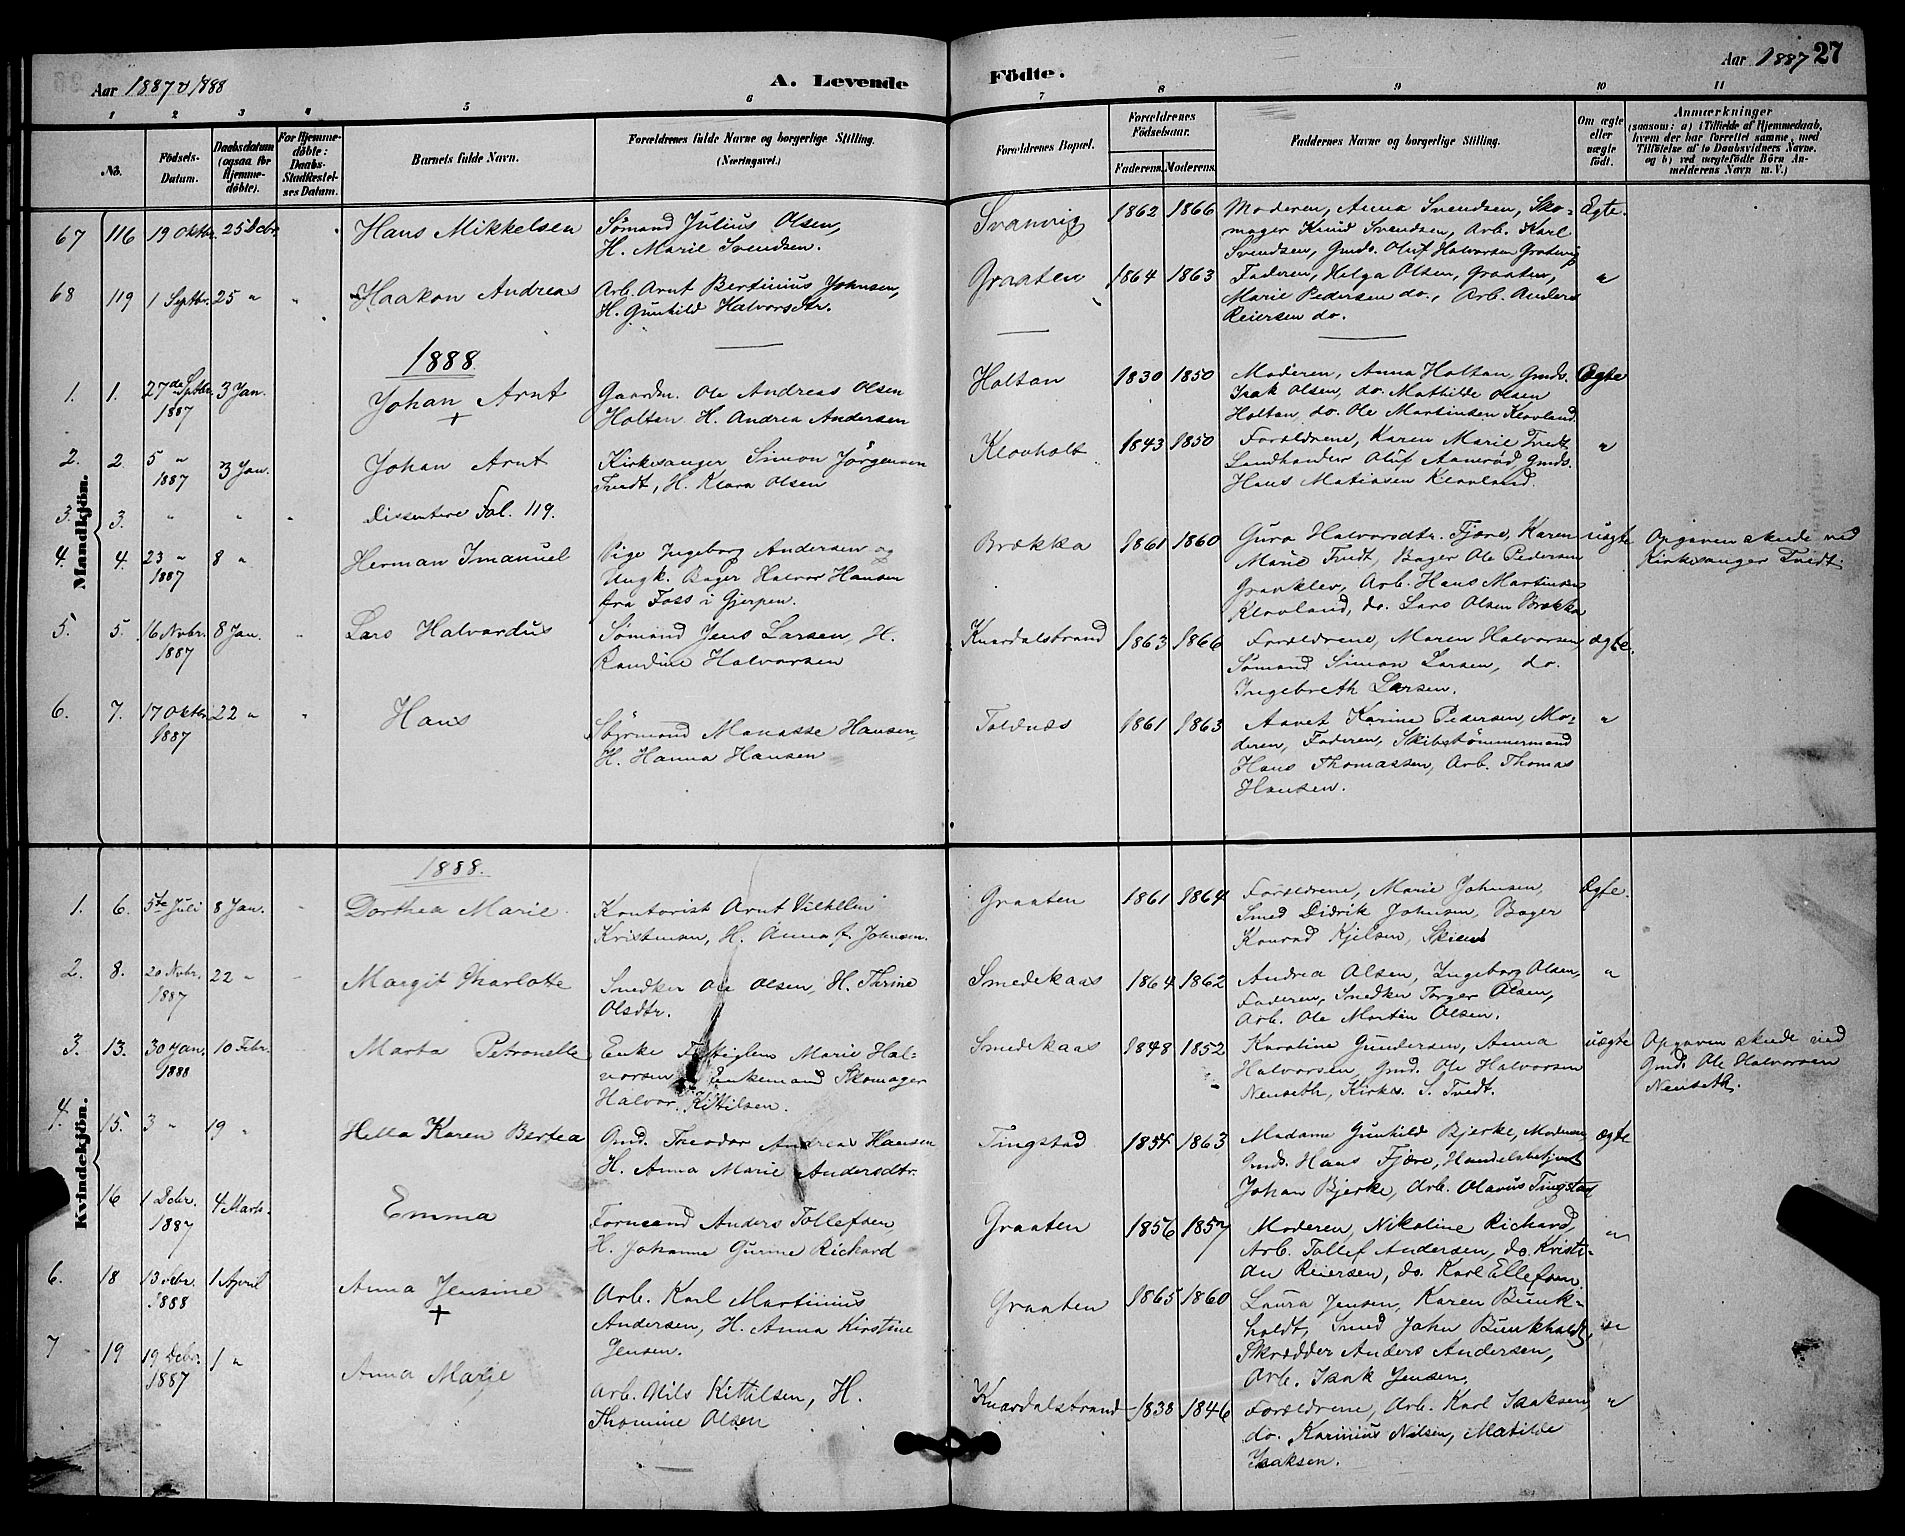 Aar 1887 & 1888
A. Levende Födte.
Aar 1887 27
1 2 3 4 5 6 7 8 9 10 11
No. Födsels-Datum. Daabsdatum (ogsaa for Hjemme-döbte). For Hjemme-döbte: Daabs-Stadfæstel-ses Datum. Barnets fulde Navn. Forældrenes fulde Navne og borgerlige Stilling. (Næringsvei.) Forældrenes Bopæl. Forældrenes Födselsaar. Faderens. Moderens. Faddernes Navne og borgerlige Stilling. Om ægte eller uægte födt. Anmærkninger
(saasom: a) i Tilfælde af Hjemmedaab,
hvem der har forrettet samme, med
Tilföielse af to Daabsvidners Navne,
og b) ved uægtefödte Börn An-
melderens Navn m. V.)
Mandkjön.
67 116 19 Oktbr. 25 Debr. Hans Mikkelsen Sømand Julius Olsen, Svanvig 1862 1866 Moderen, Anna Svendsen, Sko- Ægte.
H. Marie Svendsen. mager Knud Svendsen, Arb. Karl
Svendsen, Gmds. Oluf Halvorsen
68 119 1 Septbr. 25 " " Haakon Andreas Arb. Arnt Bertinius Johnsen, Graaten 1864 1863 Faderen, Helga Olsen, Graaten, "
H. Gunhild Halvorsdtr. Marie Pedersen do., Arb. Anders
Reiersen do.
1888.
1. 1. 27de Septbr. 1887 3 Jan. Johan Arnt + Gaardm. Ole Andreas Olsen Holtan 1830 1850 Moderen, Anna Holtan, Gmds. Ægte
Holtan H. Andrea Andersen Isak Olsen, do. Mathilde Olsen
Holtan, do. Ole Martinsen Klovland.
2. 2. 5 " 1887 3 Jan. Johan Arnt Kirkesanger Simon Jörgensen Klovholt 1843 1850 Forældrene, Karen Marie Tvedt "
Tvedt, H. Klara Olsen Landhandler Oluf Aanerød, Gmds.
Hans Matiasen Klovland.
3. 3. " " " Dissentere Fol. 119.
4. 4. 23 " 1887 8 " Herman Imanuel Pige Ingeborg Andersen og Brækka 1861 1860 Guro Halvorsdtr. Fjære, Karen uægte Opgaven skede ved
Ungk. Bager Halvor Hansen Marie Tvedt, Bager Ole Pedersen Kirkesanger Tvedt.
fra Foss i Gjerpen. Granklev, Arb. Hans Martinsen
Klovland, do. Lars Olsen Brækka
5. 5. 16 Nvbr. 1887 8 Jan. " Lars Halvardus Sømand Jens Larsen, H. Knardalstrand 1863 1866 Forældrene, Maren Halvorsen ægte.
Randine Halvorsen Sømand Simon Larsen, do.
Ingebreth Larsen.
6. 7. 17 Oktbr. 1887 22 " " Hans Styrmand Manasse Hansen, Toldnæs 1861 1863 Karine Pedersen, Mo- "
H. Hanna Hansen deren, Faderen, Skibstømmermand
Hans Thomassen, Arb. Thomas
Hansen.
Kvindekjön.
1888.
1. 6. 5te Juli 8 Jan. " Dorthea Marie. Kontorist Arnt Vilhelm Graaten 1861 1864 Forældrene, Marie Johnsen, Ægte.
Kristensen, H. Anna f. Johnsen. Smed Didrik Johnsen, Bager
Konrad Kjelsen, Skien
2. 8. 20 Nvbr. 1887 22 " Margit Charlotte Snedker Ole Olsen, H. Thrine Smedekaas 1864 1862 Andrea Olsen, Ingeborg Olsen, "
Olsdtr. Faderen, Snedker Torger Olsen,
Arb. Ole Martin Olsen.
3. 13. 30 Jan. 1888 10 Febr. Marta Petronelle Enke Marie Hal- Smedekaas 1848 1852 Karoline Gundersen, Anna uægte Opgaven skede ved
vorsen Enkemand Skomager Halvorsen, Gmd. Ole Halvorsen Gmd. Ole Halvorsen
Halvor Kittilsen. Nenseth, Kirkes. S. Tvedt. Nenseth.
4. 15. 3 " 19 " Hella Karen Bertea Gmd. Theodor Andreas Hansen Tingstad 1854 1863 Madame Gunhild Bjerke, Moderen ægte
H. Anna Marie Andersdtr. Gmds. Hans Fjære, Handelsbetjent
Johan Bjerke, Arb. Olavus Tingstad
16 1 Debr. 1887 4 Marts. Emma Formand Anders Tollefsen, Graaten 1856 1857 Moderen, Nikoline Richard, "
H. Johanne Gurine Richard Arb. Tollef Andersen, do. Kristi-
an Reiersen, do. Karl Ellefsen
6. 18 13 1888 1 April Anna Jensine + Arb. Karl Martinius Graaten 1865 1860 Laura Jensen, Karen Bunk-
Andersen, H. Anna Kirstine holdt, Smed John Bunkholdt, "
Jensen. Skrædder Anders Andersen,
Arb. Isak Jensen.
7 19 19 Debr. 1887 1 " Anna Marie Arb. Nils Kittilsen, H. Knardalstrand 1838 1846 Forældrene, Arb. Karl Isaksen, "
Thomine Olsen do. Karinius Nilsen, Matilde
Isaksen.